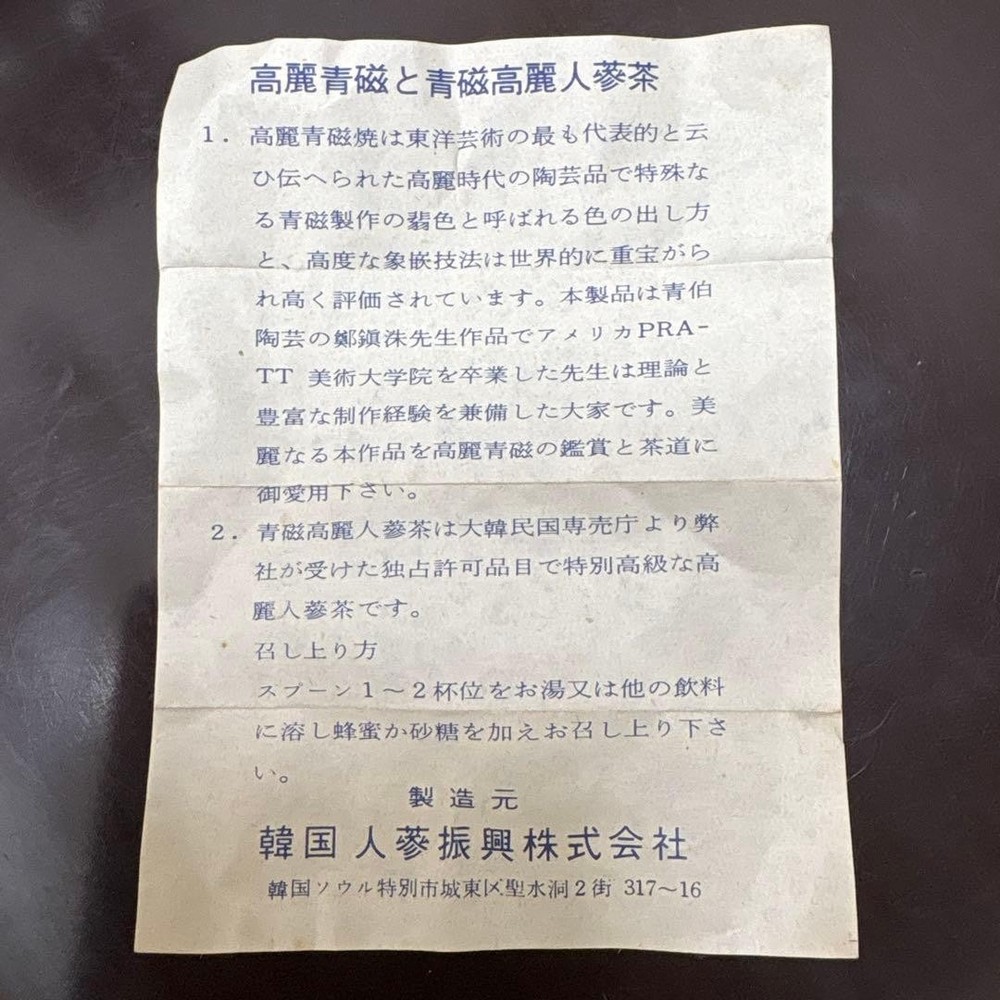 高麗青磁と青磁高麗人蔘茶
1. 高麗青磁焼は東洋芸術の最も代表的と云
ひ伝へられた高麗時代の陶芸品で特殊な
る青磁製作の翡色と呼ばれる色の出し方
と、高度な象嵌技法は世界的に重宝がら
れ高く評価されています。本製品は青伯
陶芸の鄭鎭洙先生作品でアメリカPRA-
TT 美術大学院を卒業した先生は理論と
豊富な制作経験を兼備した大家です。美
麗なる本作品を高麗青磁の鑑賞と茶道に
御愛用下さい。
2. 青磁高麗人蔘茶は大韓民国専売庁より弊
社が受けた独占許可品目で特別高級な高
麗人蔘茶です。
召し上り方
スプーン1～2杯位をお湯又は他の飲料
に溶し蜂蜜か砂糖を加えお召し上り下さ
い。
製造元
韓国人蔘振興株式会社
韓国ソウル特別市城東区聖水洞2街 317～16